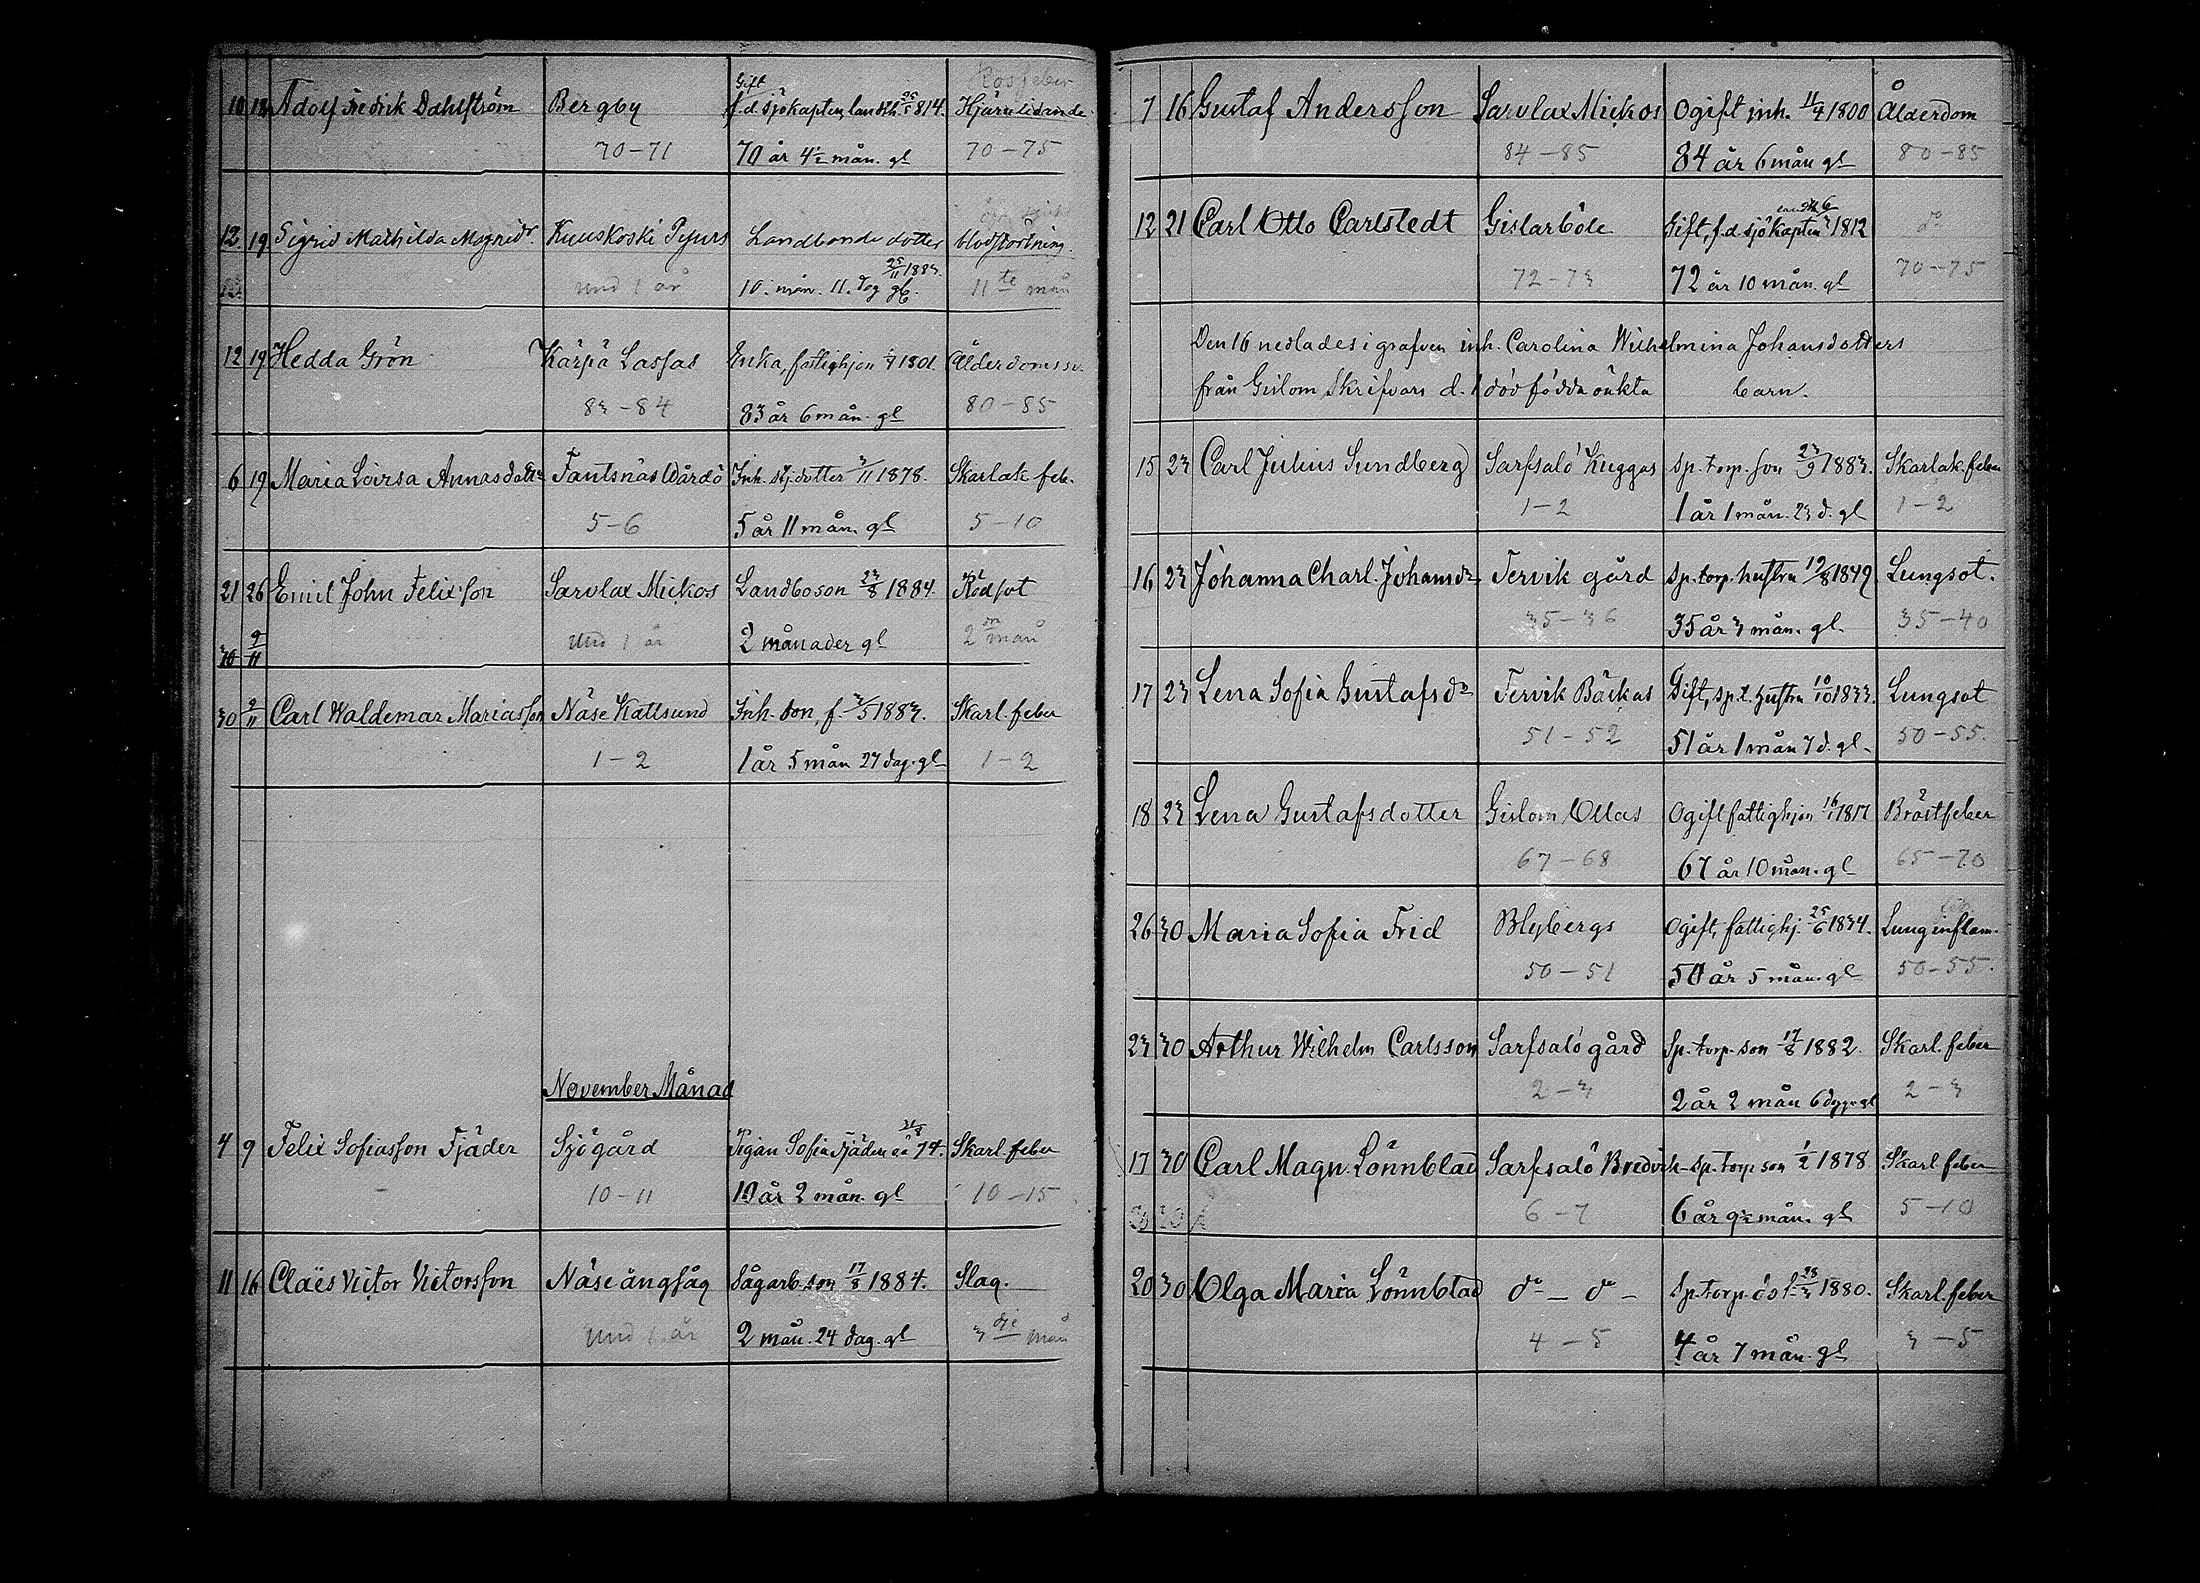 Gift Rosfeber
10 12 Adolf Fredrik Dahlström Bergby f.d. sjökapten, landtb. 25/5 1814. Hjärnlidande
70-71 70 år 4½ mån. gl 70-75
12 19 Sigrid Mathilda Magnidr Kuuskoski Pejurs Landbonde dotter blodstörtning.
und 1 år 10. mån. 11. dag gl. 25/11 1883. 11te mån
12 19 Hedda Grön Kärpä Lassas Enka, fattighjon 1801. Ålderdomssv.
83-84 83 år 6 mån. gl 80-85
6 19 Maria Lovisa Annasdottr Tantsnäs Wårdö Inh. sj. dotter 3/11 1878. Skarlak. feb.
5-6 5 år 11 mån. gl 5-10
21 26 Emil John Felixson Sarvlax Mickos Landboson 23/8 1884. Rödsot
und 1 år 2 månader gl 2dn mån
30 9/11
30 9/11 Carl Waldemar Mariasson Näse Kattsund Inh. son, f. 3/5 1883. Skarl. feber
1-2 1 år 5 mån 27 dag. gl 1-2
November Månad
4 9 Felix Sofiasson Fjäder Sjögård Pigan Sofia Fjäders oä 74. Skarl. feber
10-11 10 år 2 mån. gl 10-15
11 16 Claës Victor Victorsson Näse ångsåg Sågarb. son 17/8 1884. Slag.
und 1 år 2 mån. 24 dag. gl 3dje mån
7 16 Gustaf Andersson Sarvlax Mickos Ogift inh. 11/4 1800 Ålderdom
84-85 84 år 6 mån gl 80-85
12 21 Carl Otto Carlstedt Gislarböle Gift, f.d. sjökapten 1812 do
72-73 72 år 10 mån. gl 70-75
Den 16 nedlades i grafven inh. Carolina Wilhelmina Johansdotters
från Gislom Skrifvars d. 1 död födda oäkta barn.
15 23 Carl Julius Sundberg Sarfsalö Kuggas Sp. torp. son 23/9 1883. Skarlak. feber
1-2 1 år 1 mån. 23 d. gl 1-2
16 23 Johanna Charl. Johansdr Tervik gård Sp. torp. hustru 19/8 1849. Lungsot.
35-36 35 år 3 mån. gl. 35-40
17 23 Lena Sofia Gustafsdr Tervik Bäckas Gift, sp. t. hustru 10/10 1833. Lungsot
51-52 51 år 1 mån 7 d. gl. 50-55.
18 23 Lena Gustafsdotter Gislom Ollas Ogift fattighjon 16/1 1817 Bröstfeber
67-68 67 år 10 mån. gl 65-70
26 30 Maria Sofia Frid Blybergs Ogift, fattighj. 25/6 1834. Lunginflam.
50-51 50 år 5 mån. gl 50-55.
23 30 Arthur Wilhelm Carlsson Sarfsalö gård Sp. torp. son 17/8 1882. Skarl. feber
2-3 2 år 2 mån 6 dgr. gl 2-3
17 30 Carl Magn. Lönnblad Sarfsalö Bredvik Sp. torp son 1/2 1878 Skarl feber
6-7 6 år 9½ mån. gl 5-10
20 30 Olga Maria Lönnblad do - do - Sp. torp. do f. 28/3 1880. Skarl. feber
4-5 4 år 7 mån. gl 3-5